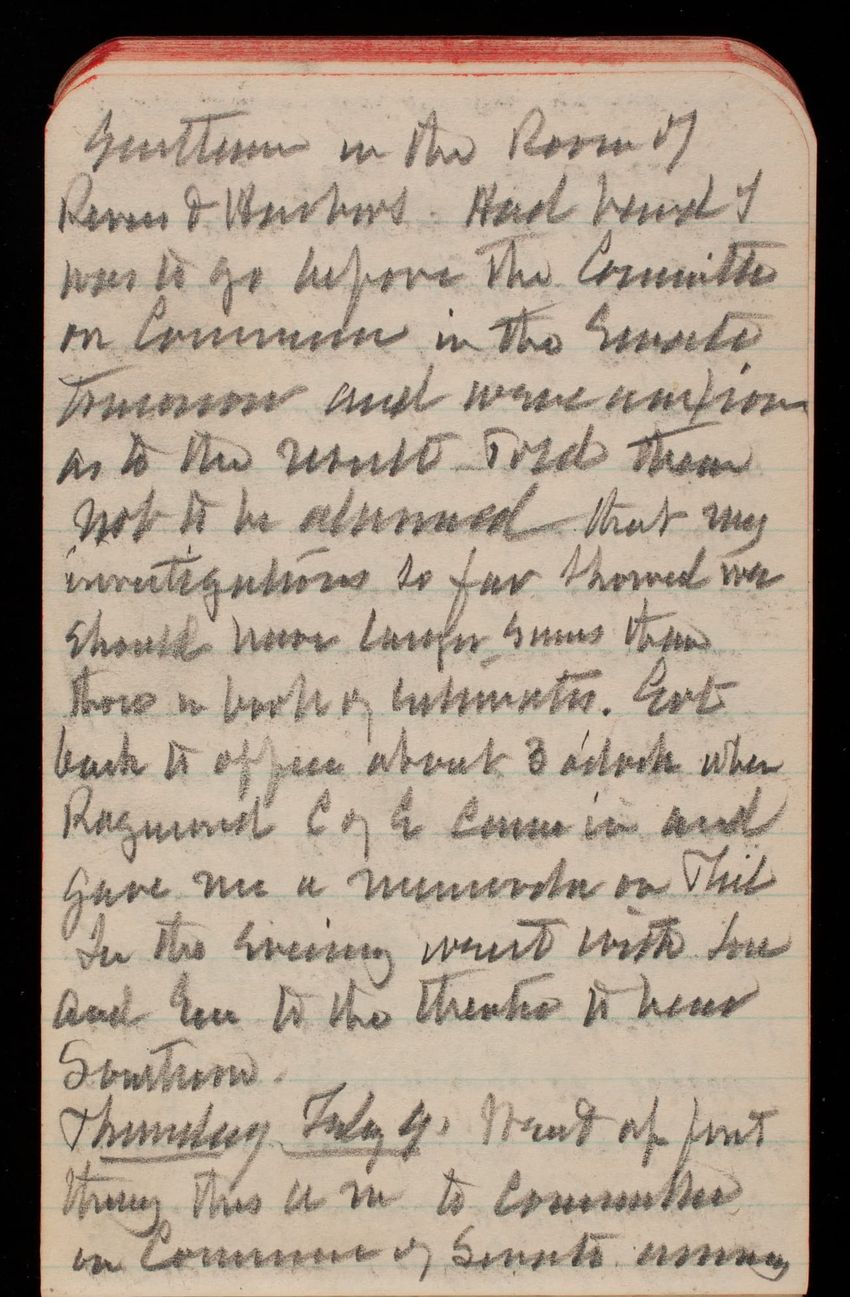 Gentlemen in the Room of
Rivers & Harbors. Had heard I
was to go before the Committee
on Commerce in the Senate
tomorrow and were anxious
as to the result Told them
not to be alarmed that my
investigations so far showed we
should have larger sums than
those in book of estimates. Got
back to office about 3 o'clock when
Raymond C of E came in and
gave me a memoranda on Phil
In the evening went with
and to the theatre to hear
Southern.
Thursday July 9. Went up first
thing this a m to Committee
on Commerce of Senate